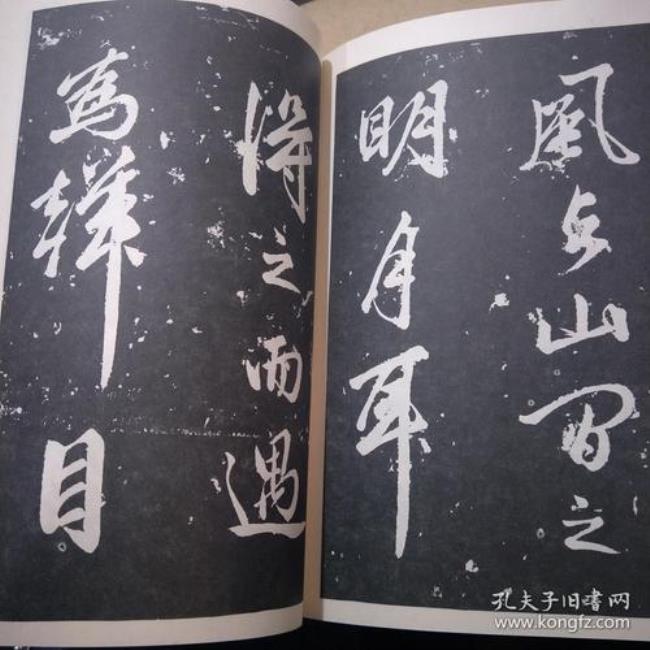 風与山間之
明月耳
得之而遇
為聲目
孔夫子旧書网
www.kongfz.com